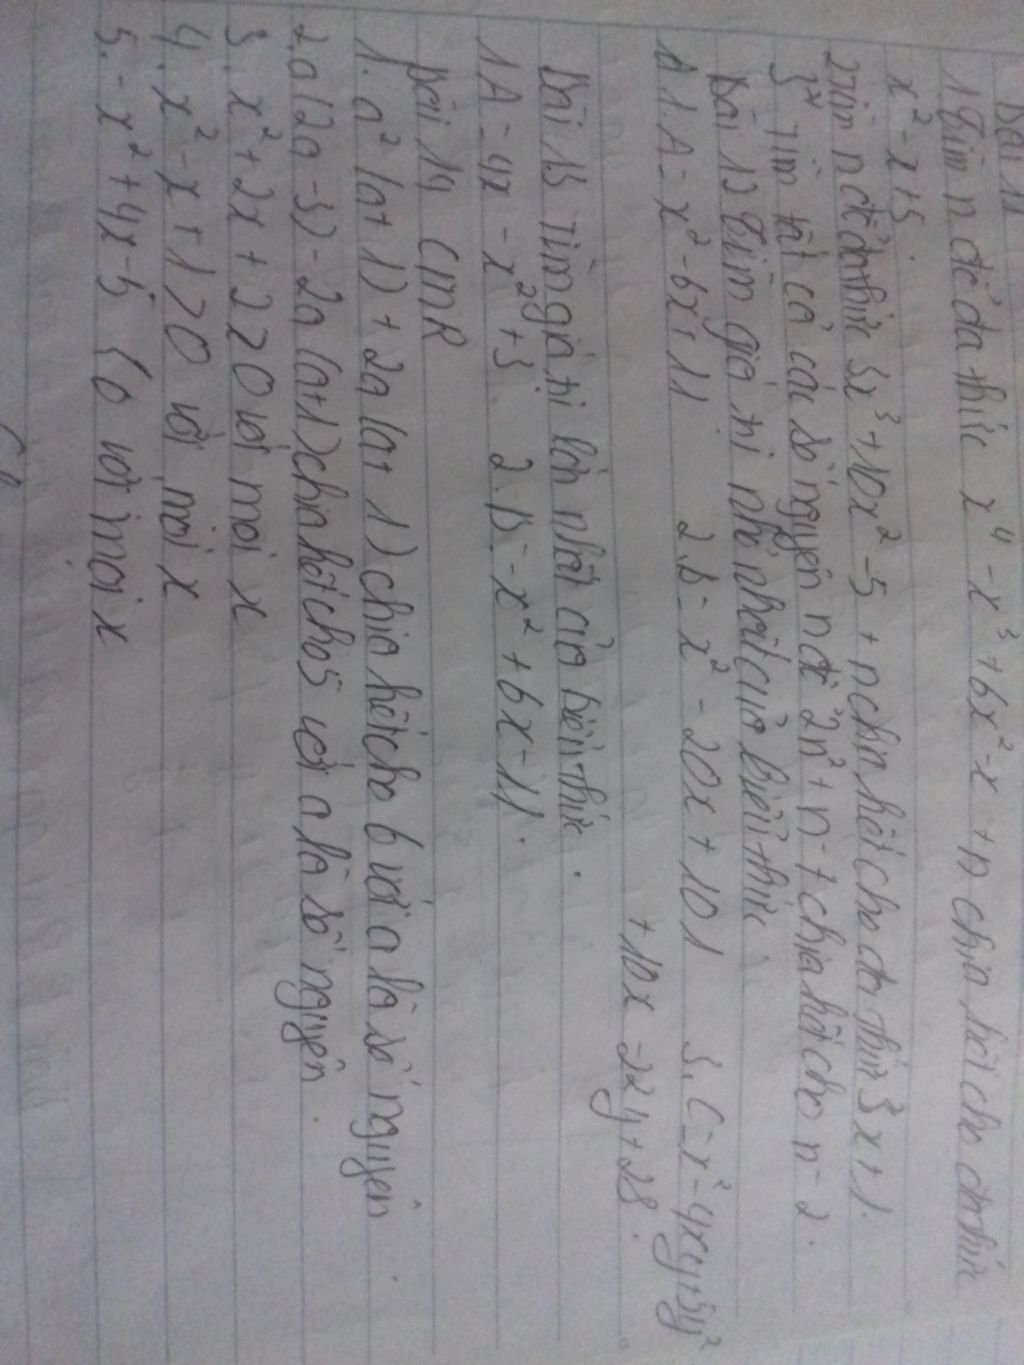 Bài 11
1 Tìm n để đa thức x⁴ - x³ + 6x² - x + n chia hết cho đa thức
x² - x + 5.
2 Tìm n để đa thức 3x³ + 10x² - 5 + n chia hết cho đa thức 3x + 1.
3* Tìm tất cả các số nguyên n để 2n² + n - 7 chia hết cho n - 2.
Bài 12 Tìm giá trị nhỏ nhất của biểu thức
1. A = x² - 6x + 11 2. B = x² - 20x + 101 3. C = x² - 4xy + 5y²
+ 10x - 22y + 28.
Bài 13 Tìm giá trị lớn nhất của biểu thức.
1. A = 4x - x² + 3. 2. B = -x² + 6x - 11.
Bài 14 CMR
1. a² (a + 1) + 2a (a + 1) chia hết cho 6 với a là số nguyên.
2. a (2a - 3) - 2a (a + 1) chia hết cho 5 với a là số nguyên.
3. x² + 2x + 2 > 0 với mọi x
4. x² - x + 1 > 0 với mọi x
5. -x² + 4x - 5 < 0 với mọi x